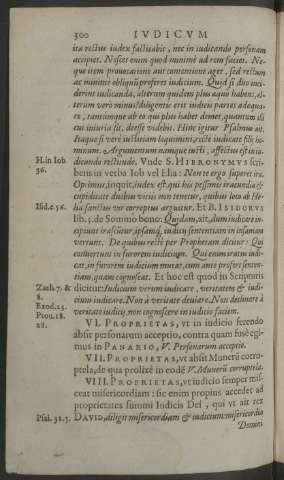 300 IVDICVM
ira rectus iudex factitabit, nec in iudicando personam
accipiet. Nosces enim quod minimè ad rem faciet. Ne-
que item prouocatione aut contentione aget, sed rectum
ac minimè obliquū proferet iudicium. Quòd si duo inci-
derint iudicanda, alterum quidem plus aquo habens, al-
terum verò minus: diligenter erit iudicij partes adæqua-
re, tantumque ab eo qui plus habet demet, quantum di
cui iniuria sit, deesse videbit. Hinc igitur Psalmus ait.
Itaque si verè iustitiam loquimini, rectè iudicate filij ho-
minum. Argumentum namque iusti, affectus est in iu-
H. in Iob dicando rectitudo. Vnde S. HIERONYMVS scri-
36. bens in verba Iob vel Elia: Non te ergo superet ira.
Optimus, inquit, iudex est, qui hîc pessimis iracundia &
cupiditate duobus vitiis non tenetur, quibus ita ab He-
Isid. c. 56. lia sanctus vir correptus arguitur. Et B. ISIDORVS
lib. 3. de Sommo bono: Quidam, ait, dum iudicare in-
cipiunt irascūtur, ipsamq́; iudicij sententiam in insaniam
vertunt. De quibus rectè per Prophetam dicitur: Qui
conuertunt in furorem iudicium. Qui enim iratus iudi-
cat, in furorem iudicium mutat, cum antè profert senten-
tiam, quam cognoscat. Et hoc est quod in Scripturis
Zach. 7. & dicitur: Iudicium verum iudicare, veritatem & iudi-
8. cium iudicare. Non à veritate deuiare. Non declinare à
Exod. 23. veritate iudicij, non cognoscere in iudicio faciem.
Prou. 18.
28. VI. PROPRIETAS, vt in iudicio ferendo
absit personarum acceptio, contra quam fusè egi-
mus in PANARIO, V. Personarum acceptio.
VII. PROPRIETAS, vt absit Munerū corru-
ptela, de qua prolixè in eodē V. Munerū corruptela.
VIII. PROPRIETAS, vt iudicio semper mis-
ceat misericordiam: sic enim propius accedet ad
proprietates summi Iudicis Dei, qui vt ait rex
Psal. 32. 5. DAVID, diligit misericordiam & iudicium: misericordia
Domini